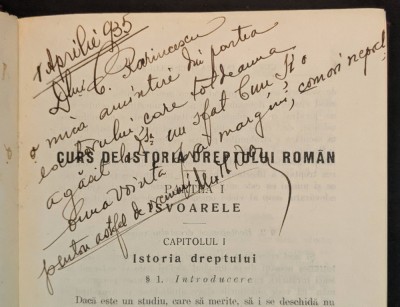 1 Aprilie 935
Dlui C. Rarincescu
o mică amintire din partea
editorului care totdeauna
a găsit la Dv. un sfat bun și o
buna voință fără margini, comori
pentru astfel de vremuri
CURS DE ISTORIA DREPTULUI ROMÂN
PARTEA I
ISVOARELE
CAPITOLUL I
Istoria dreptului
§ 1. Introducere
Dacă este un studiu, care să merite, să i se deschidă nu